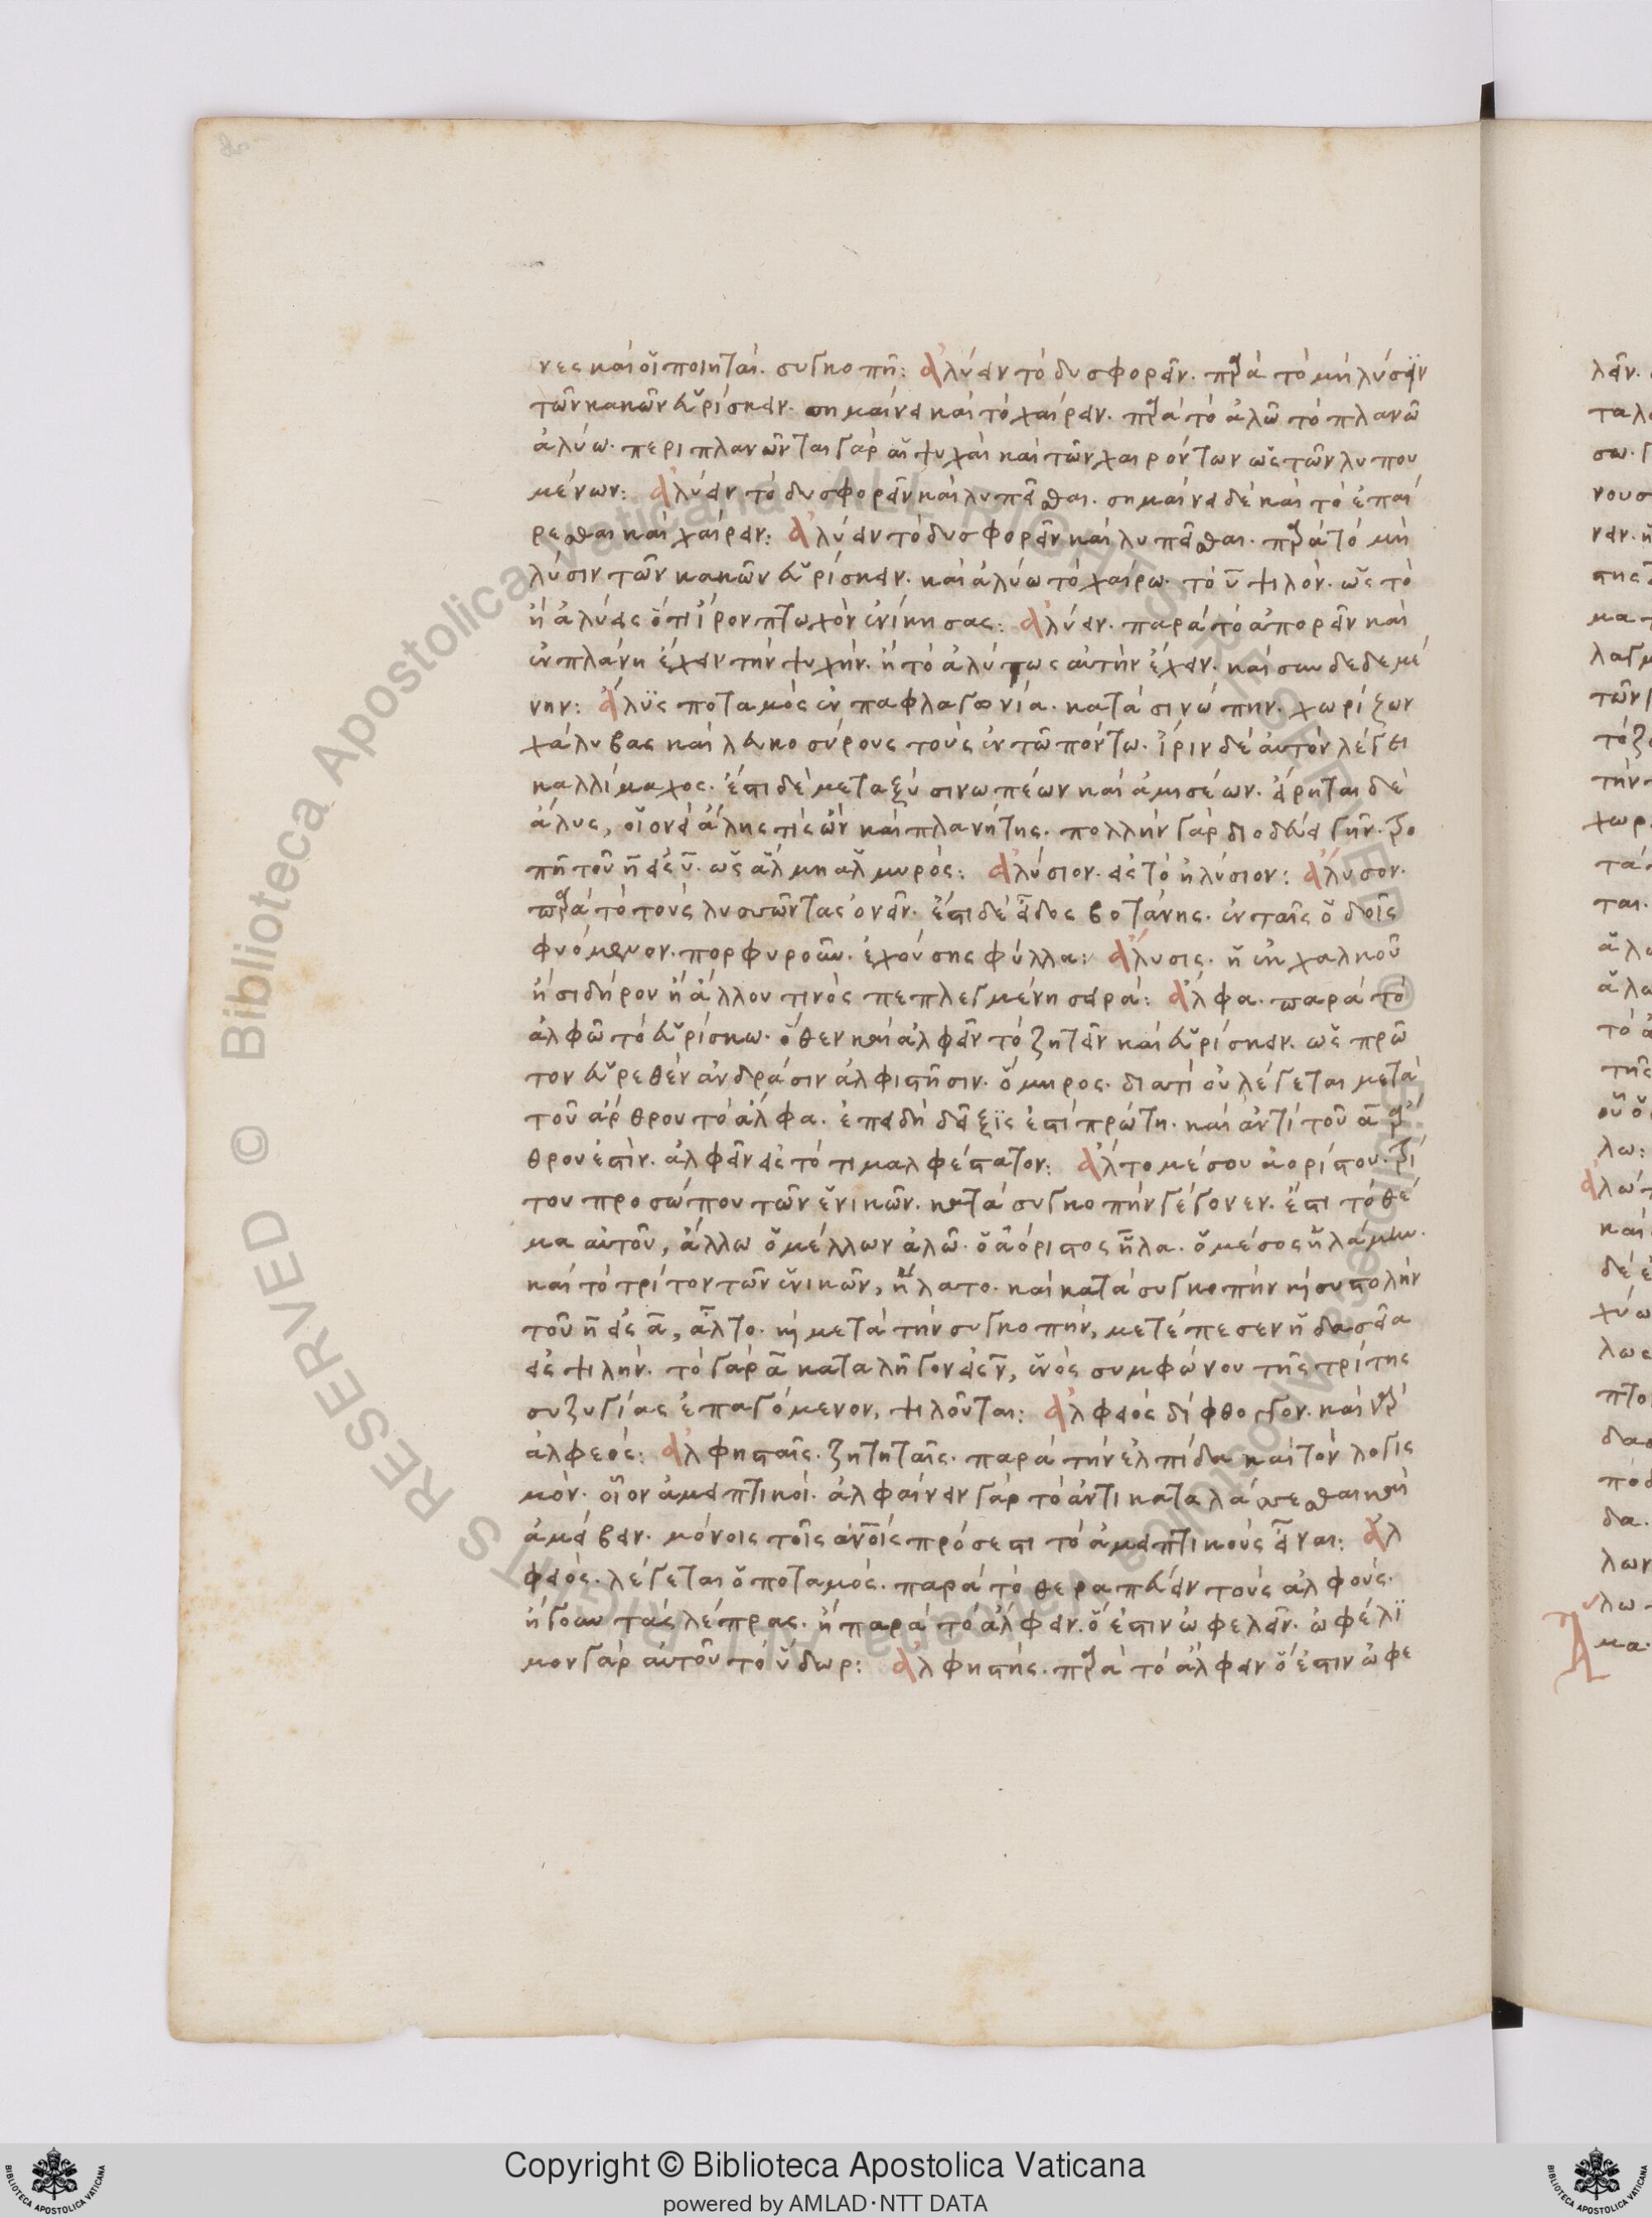 νες καὶ οἱ ποιηταὶ. συγκοπῆ: ἀλύειν τὸ δυσφορεῖν. παρὰ τὸ μὴ λύσϊν
τῶν κακῶν εὑρίσκειν. σημαίνει καὶ τὸ χαίρειν. παρὰ τὸ ἀλῶ τὸ πλανῶ
ἀλύω. περιπλανῶνται γὰρ αἱ ψυχαὶ καὶ τῶν χαιρόντων ὡς τῶν λυπου
μένων: ἀλύειν τὸ δυσφορεῖν καὶ λυπεῖσθαι. σημαίνει δὲ καὶ τὸ ἐπαί
ρεσθαι καὶ χαίρειν: ἀλύειν τὸ δυσφορεῖν καὶ λυπεῖσθαι. παρὰ τὸ μὴ
λύσιν τῶν κακῶν εὑρίσκειν. καὶ ἀλύω τὸ χαίρω. τὸ ῡ ψιλόν. ὡς τὸ
ἢ ἀλύεις ὅτι ἶρον πτωχὸν ἐνίκησας: ἀλύειν. παρὰ τὸ ἀπορεῖν καὶ
ἐν πλάνη ἔχειν τὴν ψυχήν. ἢ τὸ ἀλύτως αὐτὴν ἔχειν. καὶ συνδεδεμέ
νην: ἄλϋς ποταμὸς ἐν παφλαγονία. κατὰ σινώπην. χωρίζων
χάλυβας καὶ λευκοσύρους τοὺς ἐν τῶ πόντω. ἶριν δὲ αὐτὸν λέγει
καλλίμαχος. ἔστι δὲ μεταξὺ σινωπέων καὶ ἀμισέων. εἴρηται δὲ
ἄλυς, οἱονεὶ ἄλης τίς ὢν καὶ πλανήτης. πολλὴν γὰρ διοδεύει γῆν. τρο
πῆ τοῦ η̄ εἰς ῡ. ὡς ἅλμη ἁλμυρός: ἀλύσιον. εἰς τὸ ἠλύσιον: ἄλυσον.
παρὰ τὸ τοὺς λυσσῶντας ὀνεῖν. ἔστι δὲ εἶδος βοτάνης. ἐν ταῖς ὁδοῖς
φυόμενον. πορφυροῦν. ἐχούσης φύλλα: ἅλυσις. ἡ ἐκ χαλκοῦ
ἢ σιδήρου ἢ ἄλλου τινὸς πεπλεγμένη σειρά: ἄλφα. παρὰ τὸ
ἀλφῶ τὸ εὑρίσκω. ὅθεν καὶ ἀλφεῖν τὸ ζητεῖν καὶ εὑρίσκειν. ὡς πρῶ
τον εὑρεθὲν ἀνδράσιν ἀλφιστῆσιν. ὅμηρος. διατί οὐ λέγεται μετὰ
τοῦ ἄρθρου τὸ ἄλφα. ἐπειδὴ δεῖξϊς ἐστὶ πρώτη. καὶ ἀντὶ τοῦ ᾱ ἄρ
θρου ἐστὶν. ἀλφεῖν εἰς τὸ τιμαλφέστατον: ἄλτο μέσου ἀορίστου. τρί
του προσώπου τῶν ἑνικῶν. κατὰ συγκοπὴν γέγονεν. ἔστι τὸ θέ
μα αὐτοῦ, ἄλλω ὁ μέλλων ἀλῶ. ὁ ἀόριστος ἧλα. ὁ μέσος ἡλάμην.
καὶ τὸ τρίτον τῶν ἑνικῶν, ἥλατο. καὶ κατὰ συγκοπὴν καὶ συστολὴν
τοῦ η̄ εἰς ᾱ, ἆλτο. καὶ μετὰ τὴν συγκοπὴν, μετέπεσεν ἡ δασεῖα
εἰς ψιλήν. τὸ γὰρ ᾱ καταλῆγον εἰς λ̄, ἑνὸς συμφώνου τῆς τρίτης
συζυγίας ἐπαγόμενον, ψιλοῦται: ἀλφειός δίφθογγον. καὶ
ἀλφεός: ἀλφησταῖς. ζητηταῖς. παρὰ τὴν ἐλπίδα καὶ τὸν λογισ
μὸν. οἷον ἀμειπτικοί. ἀλφαίνειν γὰρ τὸ ἀντικαταλάσσεσθαι καὶ
ἀμείβειν. μόνοις τοῖς ἀνοις πρόσεστι τὸ ἀμειπτικοὺς εἶναι: ἀλ
φειός. λέγεται ὁ ποταμός. παρὰ τὸ θεραπεύειν τοὺς ἀλφούς.
ἤγουν τὰς λέπρας. ἢ παρὰ τὸ ἄλφειν. ὅ ἐστιν ὠφελεῖν. ὠφέλϊ
μον γὰρ αὐτοῦ τὸ ὕδωρ: ἀλφηστής. παρὰ τὸ ἄλφειν ὅ ἐστιν ὠφε
Copyright © Biblioteca Apostolica Vaticana
powered by AMLAD・NTT DATA